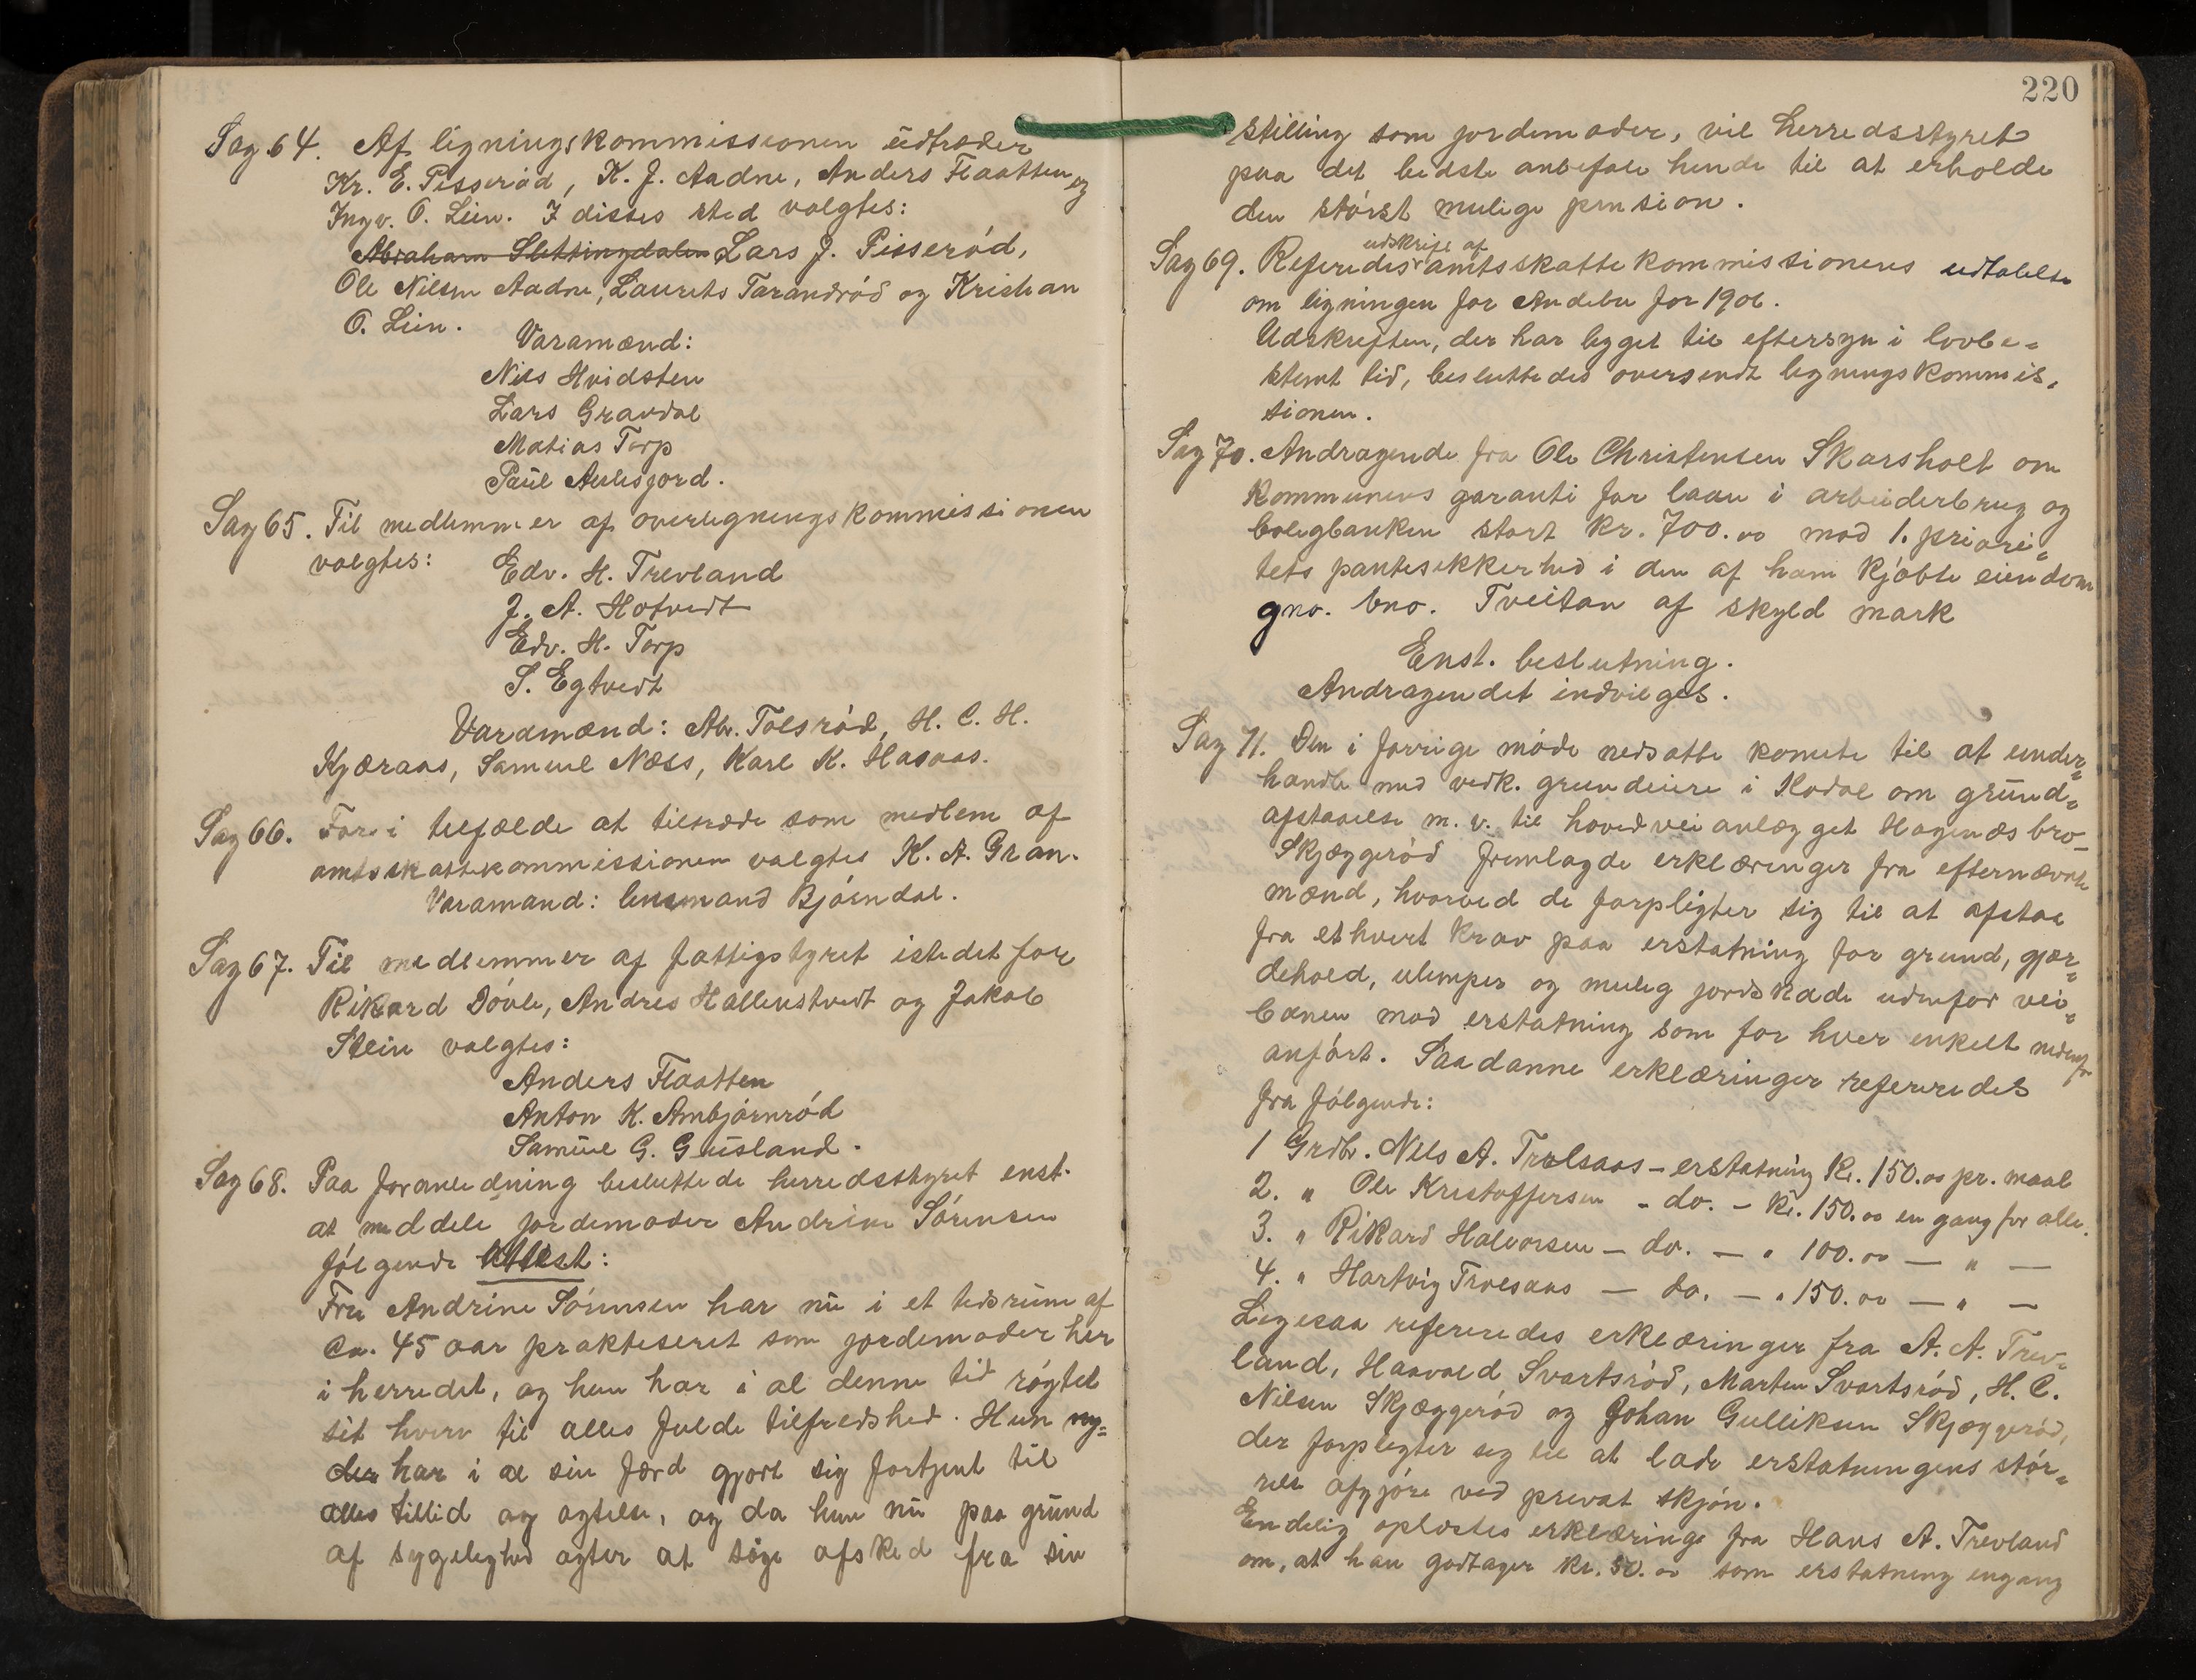 Sag 64. Af ligningskommissionen udtræder
Kr. E. Pisserød, K. J. Aadne, Anders Flaatten og
Ingv. O. Lien. I disses sted valgtes:
Abraham Slettingdalen Lars J. Pisserød,
Ole Nilsen Aadne, Laurits Tarandrød og Kristian
O. Lien.
Varamænd:
Nils Hvidsten
Lars Gravdal
Matias Torp
Paul Aulesjord.
Sag 65. Til medlemmer af overligningskommissionen
valgtes:
Edv. H. Trevland
J. A. Hotvedt
Edv. H. Torp
S. Egtvedt
Varamænd: Abr. Tolsrød, H. C. H.
Kjæraas, Samuel Næss, Karl K. Hasaas.
Sag 66. For i tilfælde at tiltræde som medlem af
amtsskattekommissionen valgtes K. A. Gran.
Varamand: lensmand Bjørndal.
Sag 67. Til medlemmer af fattigstyret istedet for
Rikard Døvle, Andres Hallenstvedt og Jakob
Stein valgtes:
Anders Flaatten
Anton K. Ambjørnrød
Samuel G. Gusland.
Sag 68. Paa foranledning besluttede herredsstyret enst.
at meddele jordemoder Andrine Sørensen
følgende attest:
Fru Andrine Sørensen har nu i et tidsrum af
Ca. 45 aar praktiseret som jordemoder her
i herredet, og hun har i al denne tid røgtet
sit hverv til alles fulde tilfredshed. Hun ny-
der har i al sin færd gjort sig fortjent til
alles tillid og agtelse, og da hun nu paa grund
af sygelighed agter at søge afsked fra sin
220
stilling som jordemoder, vil herredsstyret
paa det bedste anbefale hende til at erholde
den størst mulige pension.
udskrift af
Sag 69. Referedes amtsskattekommissionens udtalelse
om ligningen for Andebu for 1906.
Udskriften, der har ligget til eftersyn i lovbe-
stemt tid, besluttedes oversendt ligningskommis-
sionen.
Sag 70. Andragende fra Ole Christensen Skarsholt om
kommunens garanti for laan i arbeiderbrug og
boligbanken stort kr. 700.00 mod 1. priori-
tets pantesikkerhed i den af ham kjøbte eiendom
gno. bno. Tveitan af skyld mark
Enst. beslutning.
Andragendet indvilges.
Sag 71. Den i forrige møde nedsatte komite til at under-
handle med vedk. grundeiere i Kodal om grund-
afstaaelse m. v. til hovedveianlægget Hagenæs bro-
Skjæggerød fremlagde erklæringer fra efternævnte
mænd, hvorved de forpligter sig til at afstaa
fra ethvert krav paa erstatning for grund, gjær-
dehold, ulemper og mulig jordskade udenfor vei-
banen mod erstatning som for hver enkelt nedenfor
anført. Saadanne erklæringer refereredes
fra følgende:
1 Grdbr. Nils A. Trolsaas - erstatning kr. 150.00 pr. maal
2. " Ole Kristoffersen - do. - kr. 150.00 en gang for alle.
3. " Rikard Halvorsen - do. - " 100.00 - " -
4. " Hartvig Trolsaas - do. - " 150.00 - " -
Ligesaa refereredes erklæringer fra A. A. Trev-
land, Haavald Svartsrød, Marten Svartsrød, H. C.
Nilsen Skjæggerød og Johan Gulliksen Skjæggerød,
der forpligter sig til at lade erstatningens stør-
relse afgjøre ved privat skjøn.
Endelig oplæstes erklæring fra Hans A. Trevland
om, at han godtager kr. 50.00 som erstatning engang